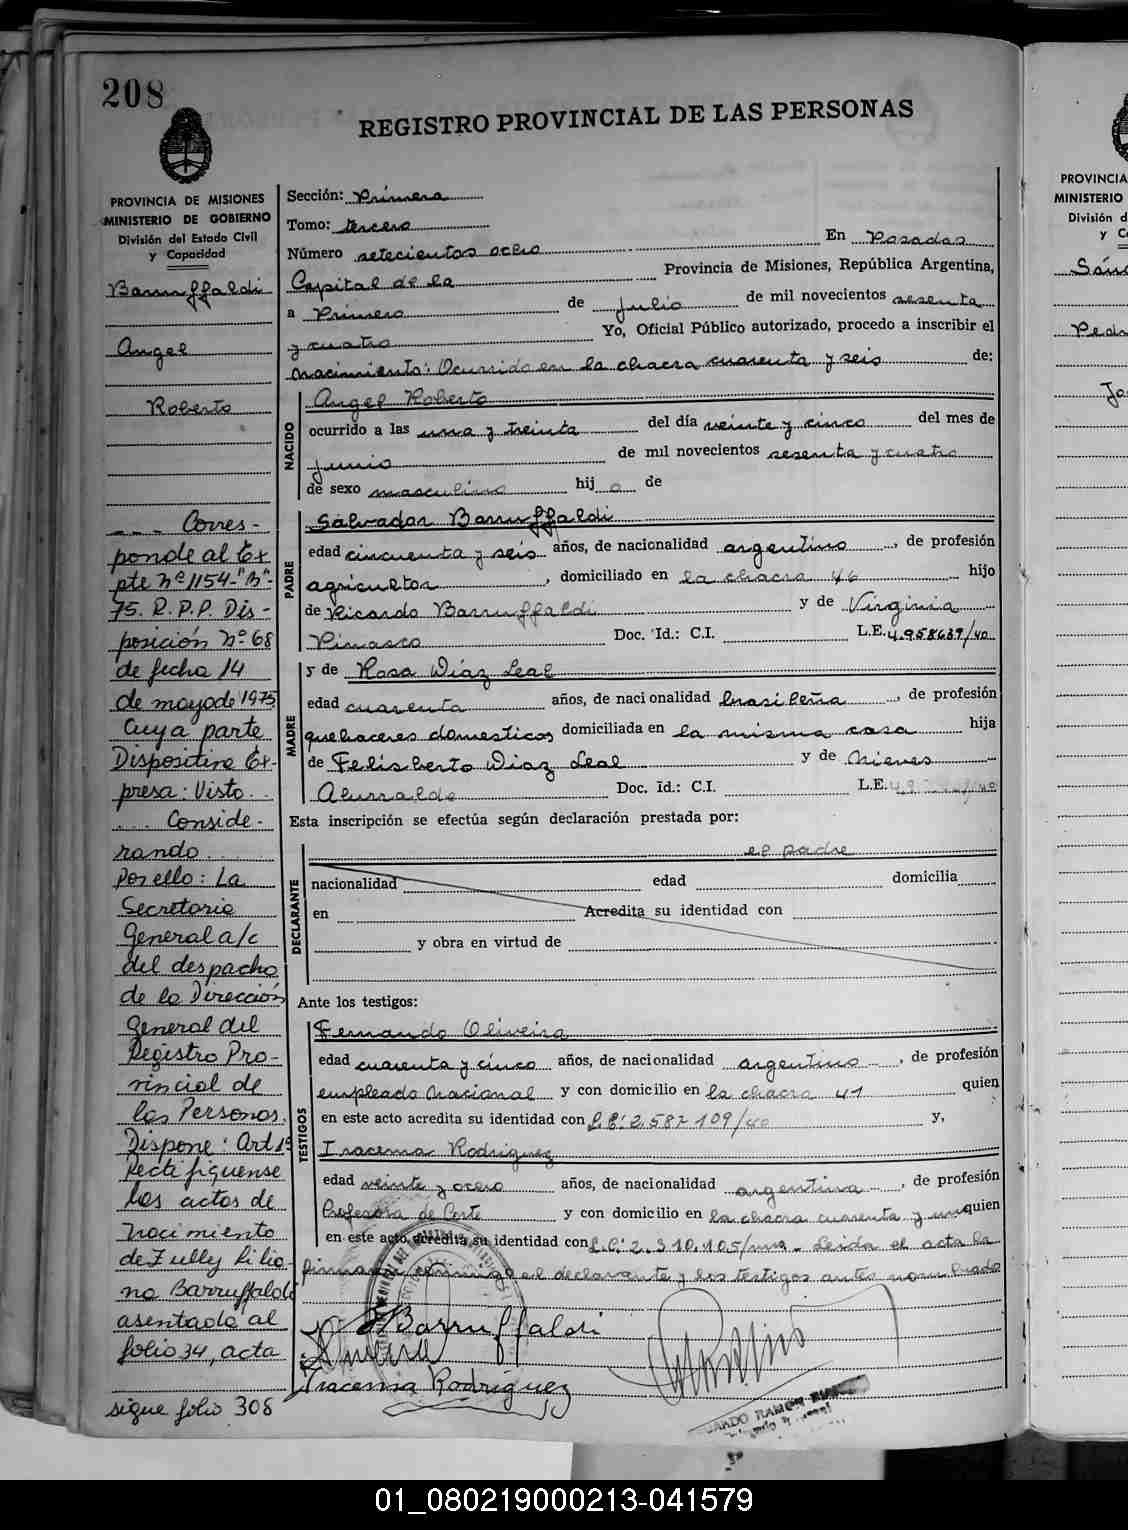 208
REGISTRO PROVINCIAL DE LAS PERSONAS
PROVINCIA DE MISIONES
MINISTERIO DE GOBIERNO
División del Estado Civil
y Capacidad
Barruffaldi
Angel
Roberto
_ _ _ Corres-
ponde al Ex
pte Nº 1154-"B"-
75. R.P.P. Dis-
posición Nº 68
de fecha 14
de mayo de 1975
Cuya parte
Dispositiva Ex-
presa: Visto..
.... Conside-
rando....
Por ello: La
Secretaria
General a/c
del despacho
de la Dirección
General del
Registro Pro-
vincial de
las Personas.
Dispone: Art 1º
Rectifiquense
los actas de
nacimiento
de Zully Lilia-
na Barruffaldi
asentada al
folio 34, acta
sigue folio 308
Sección: Primera
Tomo: tercero
Número setecientos ocho En Posadas
Capital de la Provincia de Misiones, República Argentina,
a Primero de Julio de mil novecientos sesenta
y cuatro Yo, Oficial Público autorizado, procedo a inscribir el
nacimiento: Ocurrido en la chacra cuarenta y seis de:
NACIDO
Angel Roberto
ocurrido a las una y treinta del día veinte y cinco del mes de
junio de mil novecientos sesenta y cuatro
de sexo masculino hijo de
PADRE
Salvador Barruffaldi
edad cincuenta y seis años, de nacionalidad argentino, de profesión
agricultor, domiciliado en la chacra 46 hijo
de Ricardo Barruffaldi y de Virginia
Pinasco Doc. Id.: C.I. L.E. 4.958639/40
MADRE
y de Rosa Diaz Leal
edad cuarenta años, de nacionalidad brasileña, de profesión
quehaceres domesticos domiciliada en la misma casa hija
de Felisberto Diaz Leal y de Nieves
Alurralde Doc. Id.: C.I. L.E.
Esta inscripción se efectúa según declaración prestada por:
DECLARANTE
el padre
nacionalidad edad domicilia
en Acredita su identidad con
y obra en virtud de
Ante los testigos:
TESTIGOS
Fernando Oliveira
edad cuarenta y cinco años, de nacionalidad argentino, de profesión
empleado Nacional y con domicilio en la chacra 41 quien
en este acto acredita su identidad con L.E: 2.587109/40 y,
Iracema Rodriguez
edad veinte y ocho años, de nacionalidad argentina, de profesión
Profesora de Corte y con domicilio en la chacra cuarenta y un quien
en este acto acredita su identidad con L.C: 2.310.105/mna. Leida el acta la
firman conmigo el declarante y los testigos antes nombrado
S Barruffaldi
Iracema Rodriguez
RAMON
PROVINCIA
MINISTERIO
División d
Sánc
Pedr
Jo
01_080219000213-041579